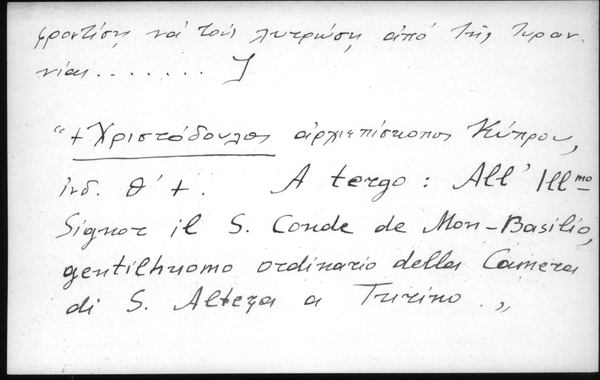 φροντίση νά τούς λυτρώση από τής τυραν-
νίας ....... ]
"+ Χριστόδουλος αρχιεπίσκοπος Κύπρου,
ινδ. θ΄ +. A tergo : All' Ill^mo
Signor il S. Conde de Mon-Basilio,
gentilhuomo ordinario della Camera
di S. Alteza a Turino.„